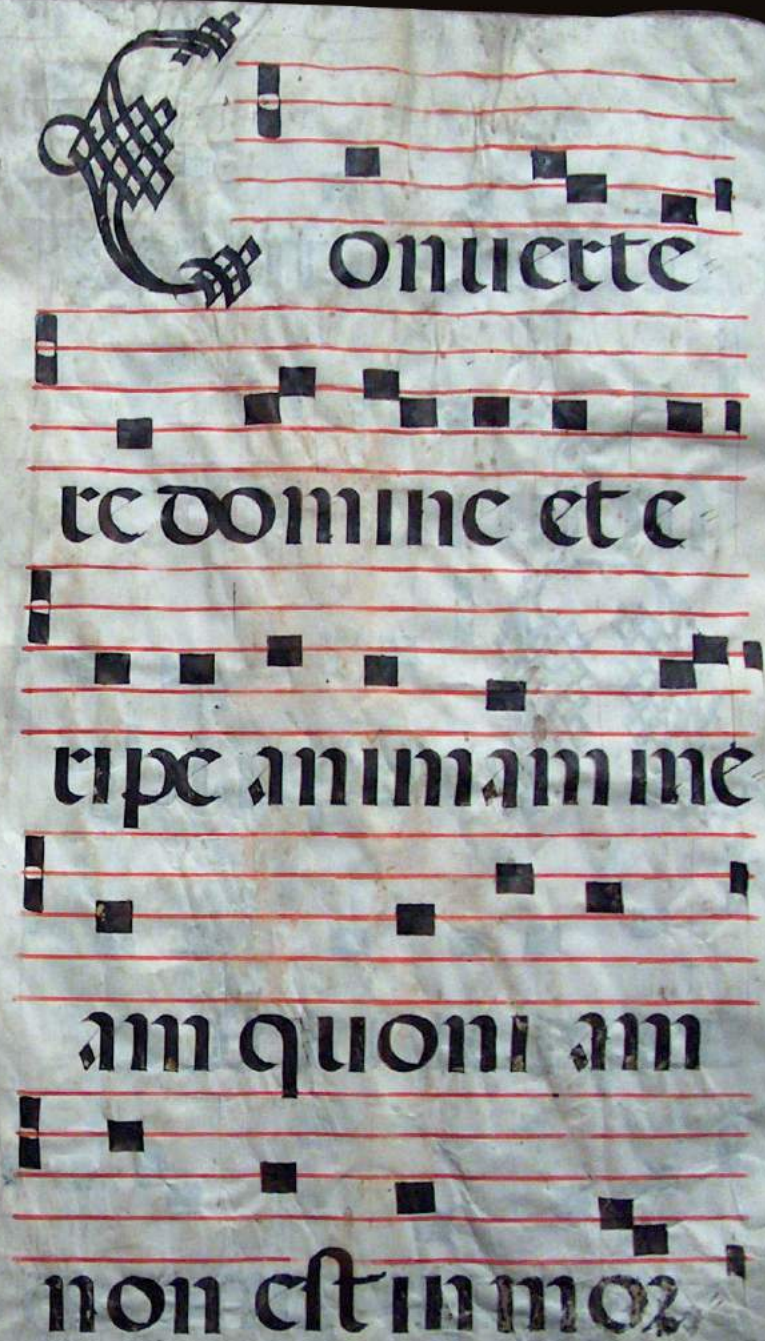 Conuerte
re domine et e
ripe animam me
am quoni am
non est in mor